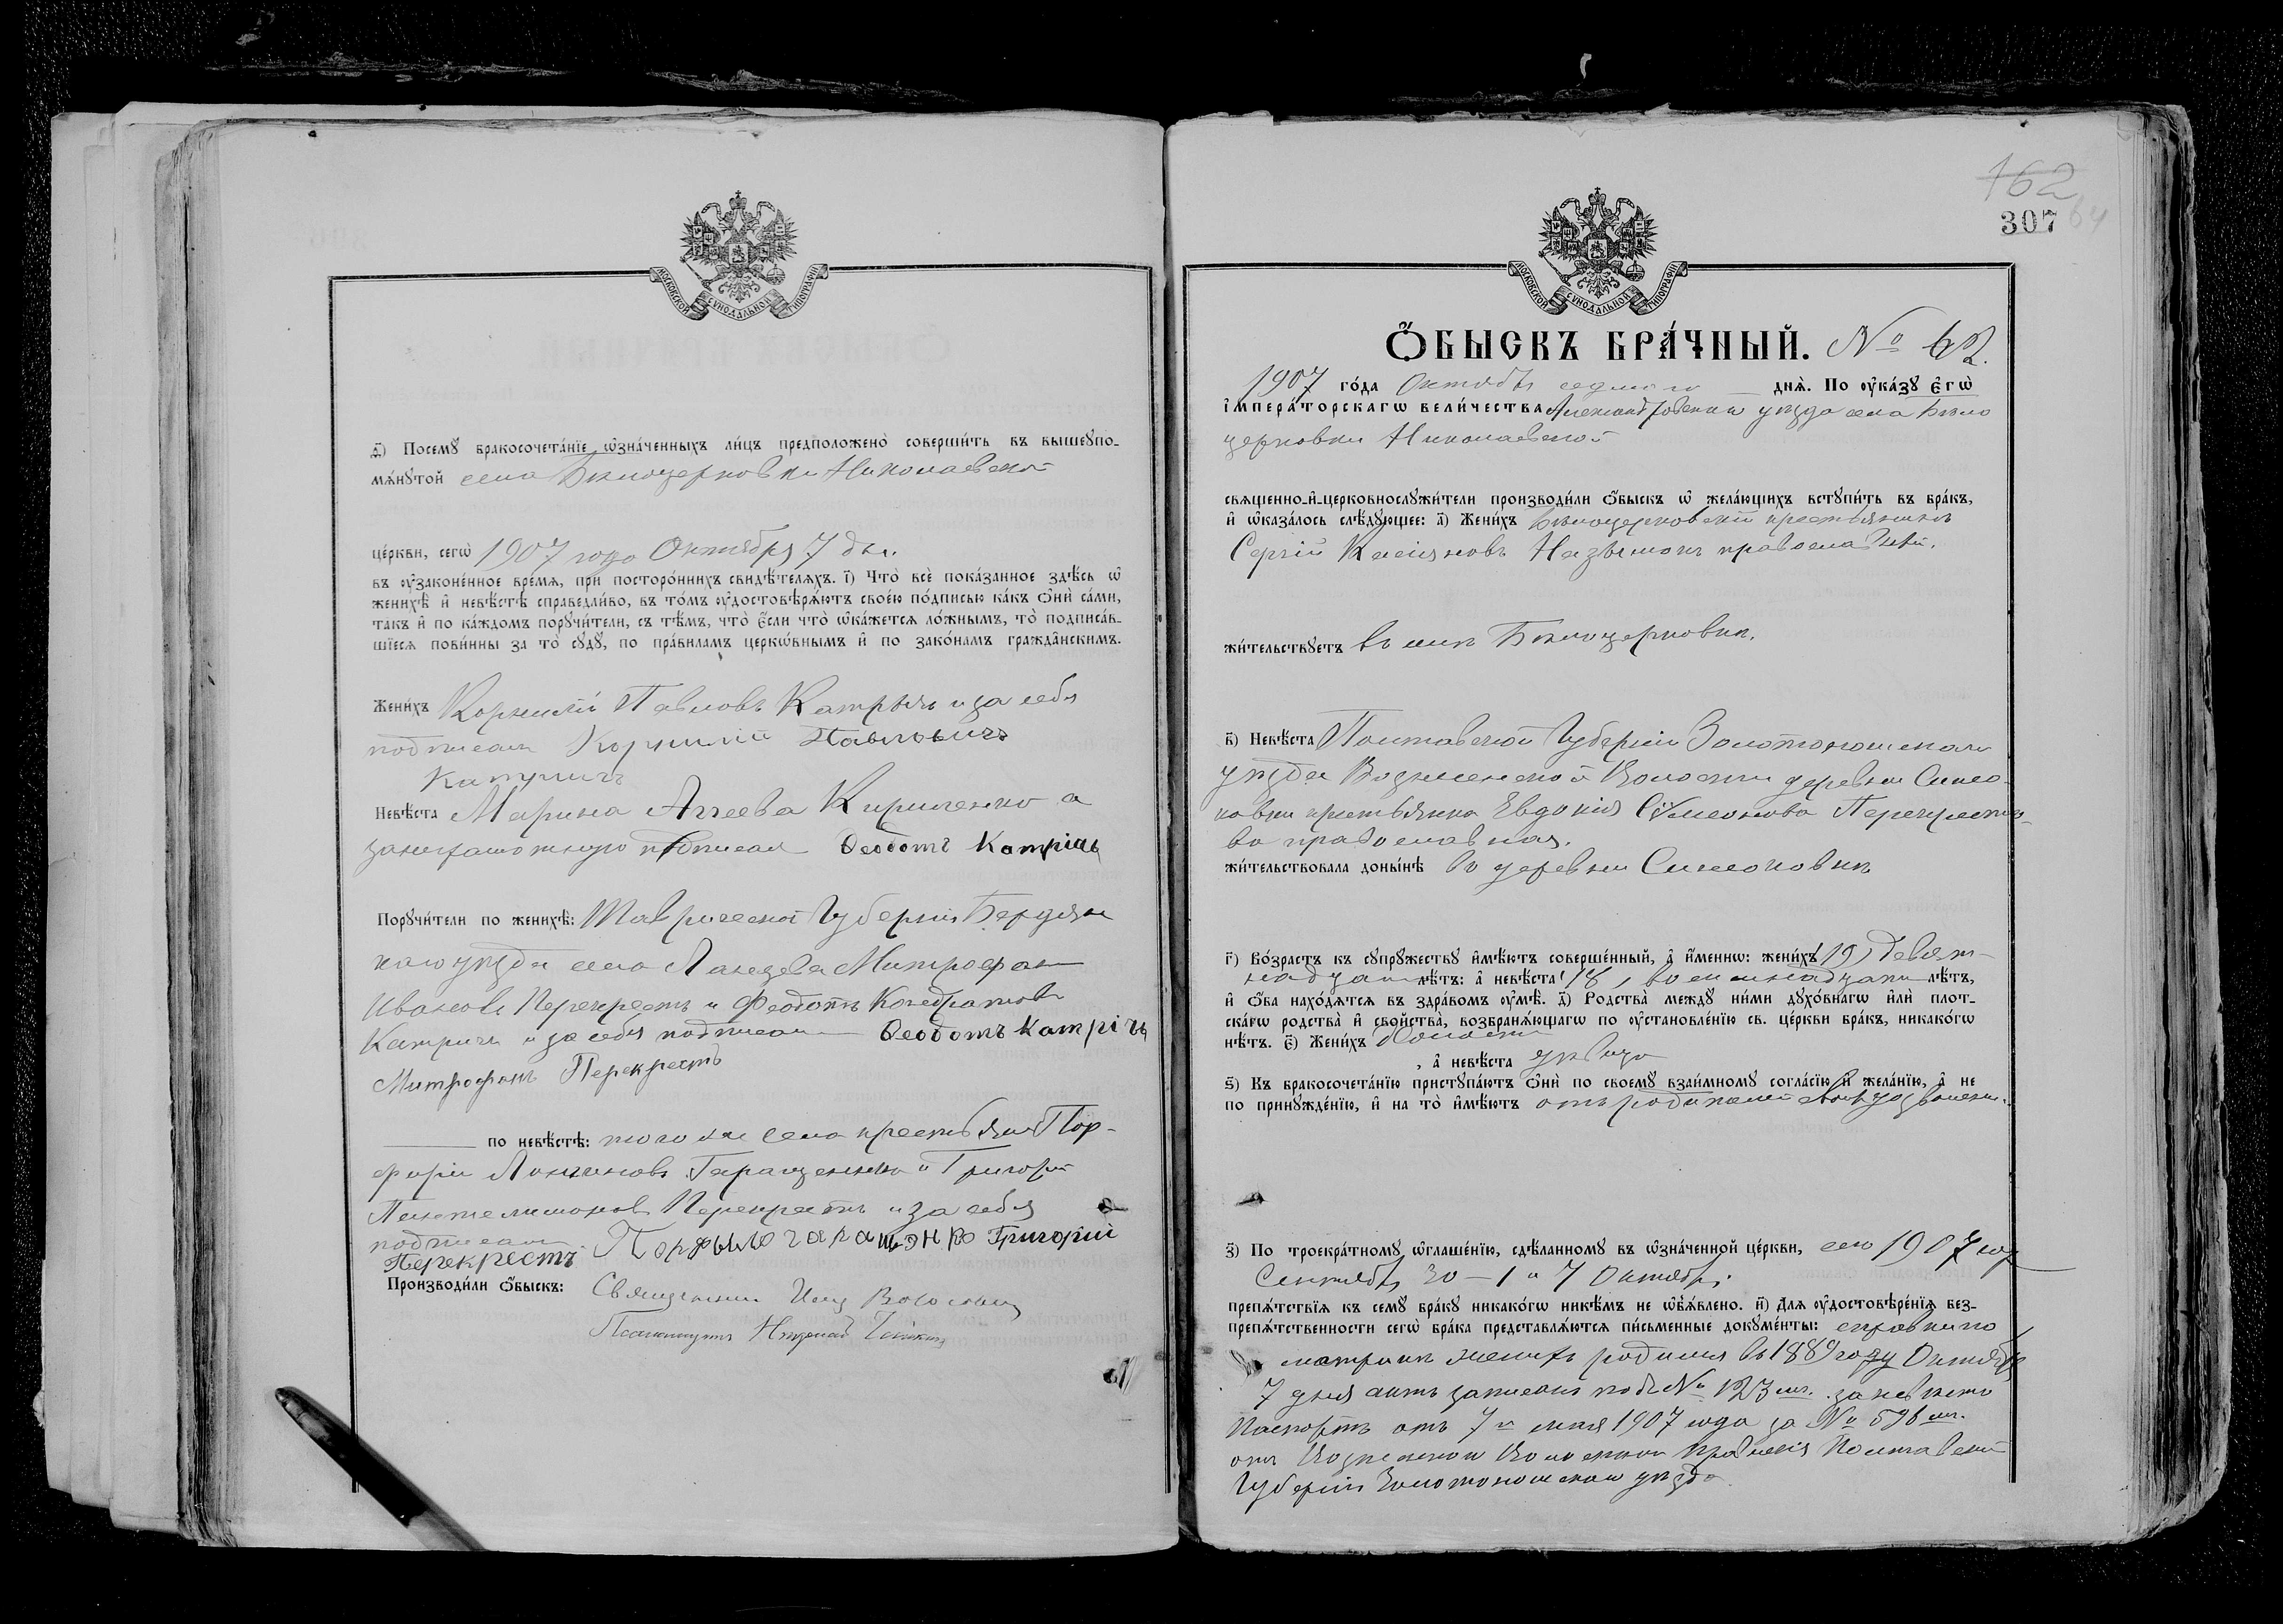 МОСКОВСКОЙ СѴНОДАЛЬНОЙ ТИПОГРАФІИ
д҃) Посемꙋ̀ бракосочета́нїе ѡ҆зна́ченныхъ ли́цъ предположено̀ соверши́ть въ вышеꙋпо-
мѧ́нꙋтой села Бѣлоцерковки Николаевской
це́ркви, сегѡ̀ 1907 года Октября 7 дня
въ ᲂу҆зако́ненное вре́мѧ, прѝ посторо́ннихъ свидѣ́телѧхъ. і҃) Что̀ всѐ пока́занное здѣ́сь ѡ҆
женихѣ̀ и҆ невѣ́стѣ справедли́во, въ то́мъ ᲂу҆достовѣрѧ́ютъ свое́ю по́дписью ка́къ ѻ҆нѝ са́ми,
та́къ и҆ по ка́ждомъ порꙋчи́тели, съ тѣ́мъ, что̀ є҆́сли что̀ ѡ҆ка́жетсѧ ло́жнымъ, то̀ подписа́в-
шїесѧ пови́нны за то̀ сꙋдꙋ̀, по пра́виламъ церкѡ́внымъ и҆ по зако́намъ гражда́нскимъ.
Жени́хъ Корнилій Павловъ Катричъ и за себя
подписалъ Корнилій Павловичъ
Катричъ
Невѣ́ста Марина Аггеева Кириченко а
за неграмотную подписал Ѳеодотъ Катрічъ
Порꙋчи́тели по женихѣ̀: Таврической Губерніи Бердян
каго уѣзда села Митрофан
Ивановъ Перекрестъ и Феодотъ Кондратовъ
Катричъ и за себя подписали Ѳеодотъ Катрічъ
Митрофанъ Перекрестъ
по невѣ́стѣ: того же села крестьяне Пор-
фирій Логгиновъ Геращенко и Григорій
Пантелимоновъ Перекрестъ и за себя
подписали Порфыло гаращэнко Григорій
Перекрестъ
Производи́ли ѻ҆́быскъ: Священник
Псаломщикъ
162
307 64
МОСКОВСКОЙ СѴНОДАЛЬНОЙ ТИПОГРАФІИ
Ѻ҆́БЫСКЪ БРА́ЧНЫЙ. № 62.
1907 го́да Октября седмого днѧ̀. По ᲂу҆ка́зꙋ є҆гѡ̀
і҆мпера́торскагѡ вели́чества Александровскаго уѣзда села Бѣло
церковки Николаевской
свѧще́нно-и҆-церковнослꙋжи́тели производи́ли ѻ҆́быскъ ѡ҆ жела́ющихъ встꙋпи́ть въ бра́къ,
и҆ ѡ҆каза́лось слѣ́дꙋющее: а҃) Жени́хъ Бѣлоцерковскій крестьянинъ
Сергій Касіяновъ православный.
жи́тельствꙋетъ въ селѣ Бѣлоцерковкѣ.
в҃) Невѣ́ста Полтавской Губерніи Золотоношскаго
уѣзда Вознесенской Волости деревни Симо-
новки крестьянка Евдокія Сѵмеонова Перекресто-
ва православная.
жи́тельствовала доны́нѣ въ деревни Симоновкѣ
г҃) Во́зрастъ къ сꙋпрꙋ́жествꙋ и҆мѣ́ютъ соверше́нный, а҆ и҆́меннѡ: жени́хъ 19, девят-
надцать лѣ́тъ: а҆ невѣ́ста 18, восемнадцать лѣ́тъ,
и҆ ѻ҆́ба нахо́дѧтсѧ въ здра́вомъ ᲂу҆мѣ̀. д҃) Родства̀ междꙋ̀ ни́ми дꙋхо́внагѡ и҆лѝ плот-
ска́гѡ родства̀ и҆ сво́йства̀, возбранѧ́ющагѡ по ᲂу҆становле́нїю св. це́ркви бра́къ, никако́гѡ
нѣ́тъ. є҃) Жени́хъ Холостъ
, а҆ невѣ́ста дѣвица
ѕ҃) Къ бракосочета́нїю пристꙋпа́ютъ ѻ҆нѝ по своемꙋ̀ взаи́мномꙋ согла́сїю и҆ жела́нїю, а҆ не
по принꙋжде́нїю, и҆ на то̀ и҆мѣ́ютъ отъ родителей своихъ дозволеніе.
з҃) По троекра́тномꙋ ѡ҆глаше́нїю, сдѣ́ланномꙋ въ ѡ҆зна́ченной це́ркви, сего 1907 году
Сентября 30 – 1 и 7 Октября
препѧ́тствїѧ къ семꙋ̀ бра́кꙋ никако́гѡ никѣ́мъ не ѡ҆б̾ѧ́влено. и҃) Длѧ ᲂу҆достовѣре́нїѧ без-
препѧ́тственности сегѡ̀ бра́ка представлѧ́ютсѧ пи́сьменные докꙋме́нты: справки по
метрикѣ женихъ родился въ 1889 году Октября
7 дня актъ записанъ подъ № 123 мъ. за невѣсту
Паспортъ отъ 7го мая 1907 года за № 598 мъ.
отъ Вознесенскаго Волостного Правленія Полтавской
Губерніи Золотоношскаго уѣзда